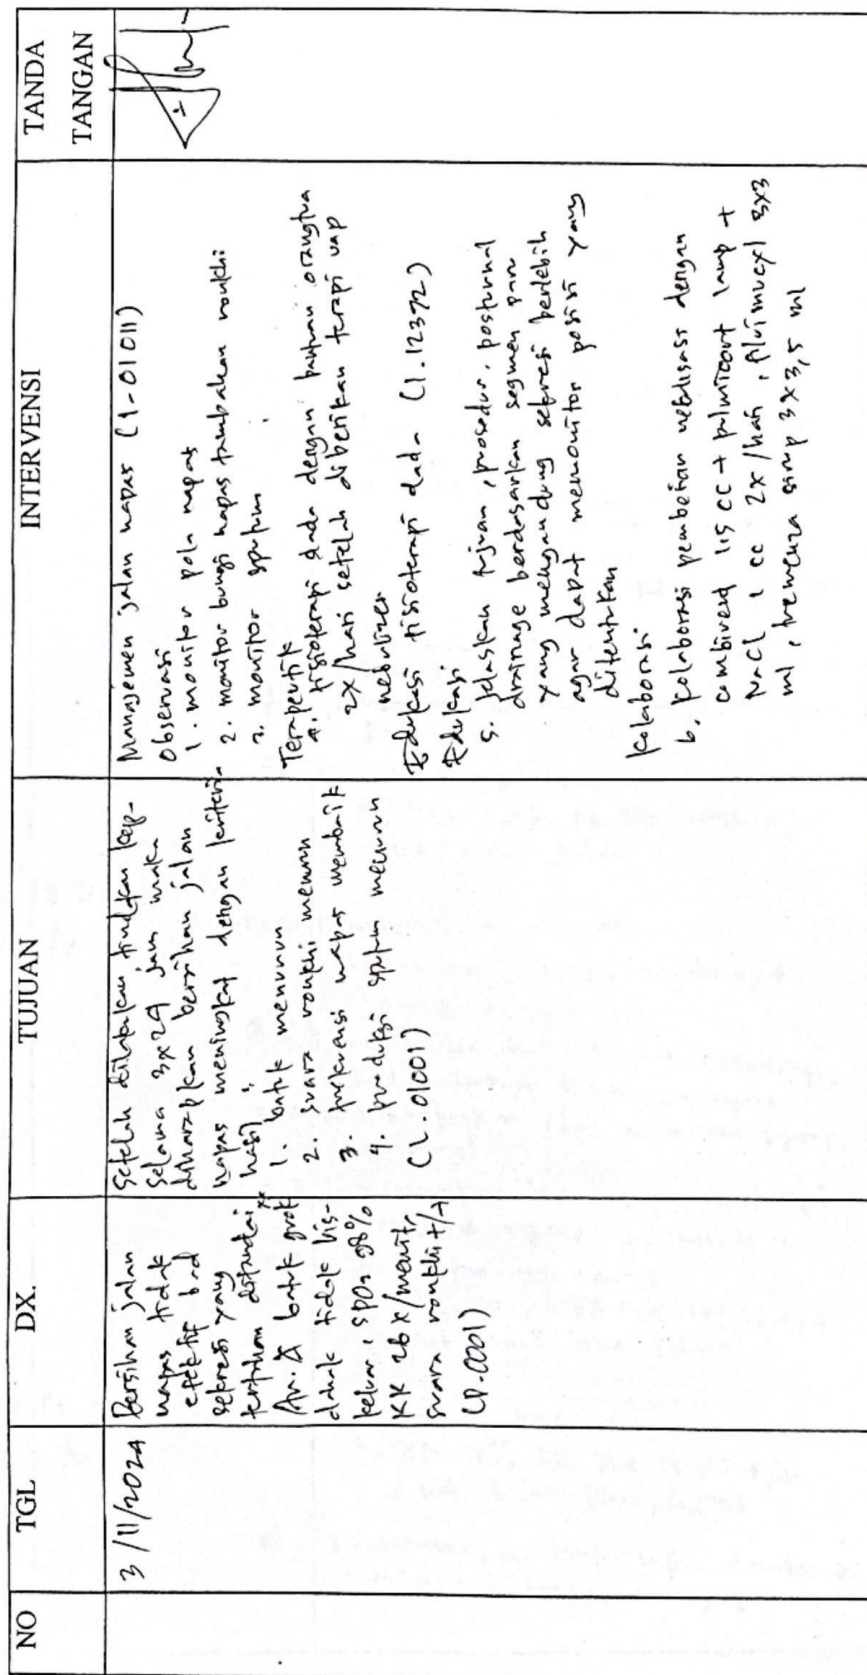 NO
TGL
DX.
TUJUAN
INTERVENSI
TANDA
TANGAN
3/11/2024
Bersihan jalan
napas tidak
efektif b.d
sekresi yang
tertahan ditandai
An A batuk grok
dahak tidak bis-
keluar, SPO2 98%
RR 26 x/menit,
suara ronkhi +/+
(D.0001)
Setelah dilakukan tindakan kep-
selama 3x24 jam maka
diharapkan bersihan jalan
napas meningkat dengan kriteri-
hasil :
1 batuk menurun
2. suara ronkhi menurun
3 frekuensi napas membaik
4. produksi sputum menurun
(L 01001)
Manajemen jalan napas (1-01011)
Observasi
1 monitor pola napas
2. monitor bunyi napas tambahan ronkhi
3. monitor sputum
Terapeutik
4. fisioterapi dada dengan bantuan orangtua
2x/hari setelah diberikan terapi uap
nebulizer
Edukasi fisioterapi dada (1.12372)
Edukasi
5. jelaskan tujuan, prosedur, postural
drainage berdasarkan segmen paru
yang mengandung sekresi berlebih
agar dapat memonitor posisi yang
ditentukan
Kolaborasi
6. kolaborasi pemberian nebulisasi dengan
combivend 1,5 cc + pulmicort 1 amp +
NaCl 1 cc 2x/hari, fluimucyl 3x3
ml, sirup 3x3,5 ml